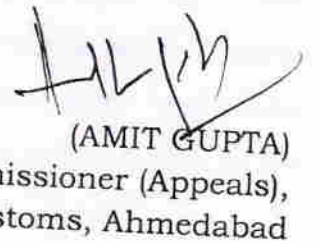 (AMIT GUPTA)
missioner (Appeals),
stoms, Ahmedabad